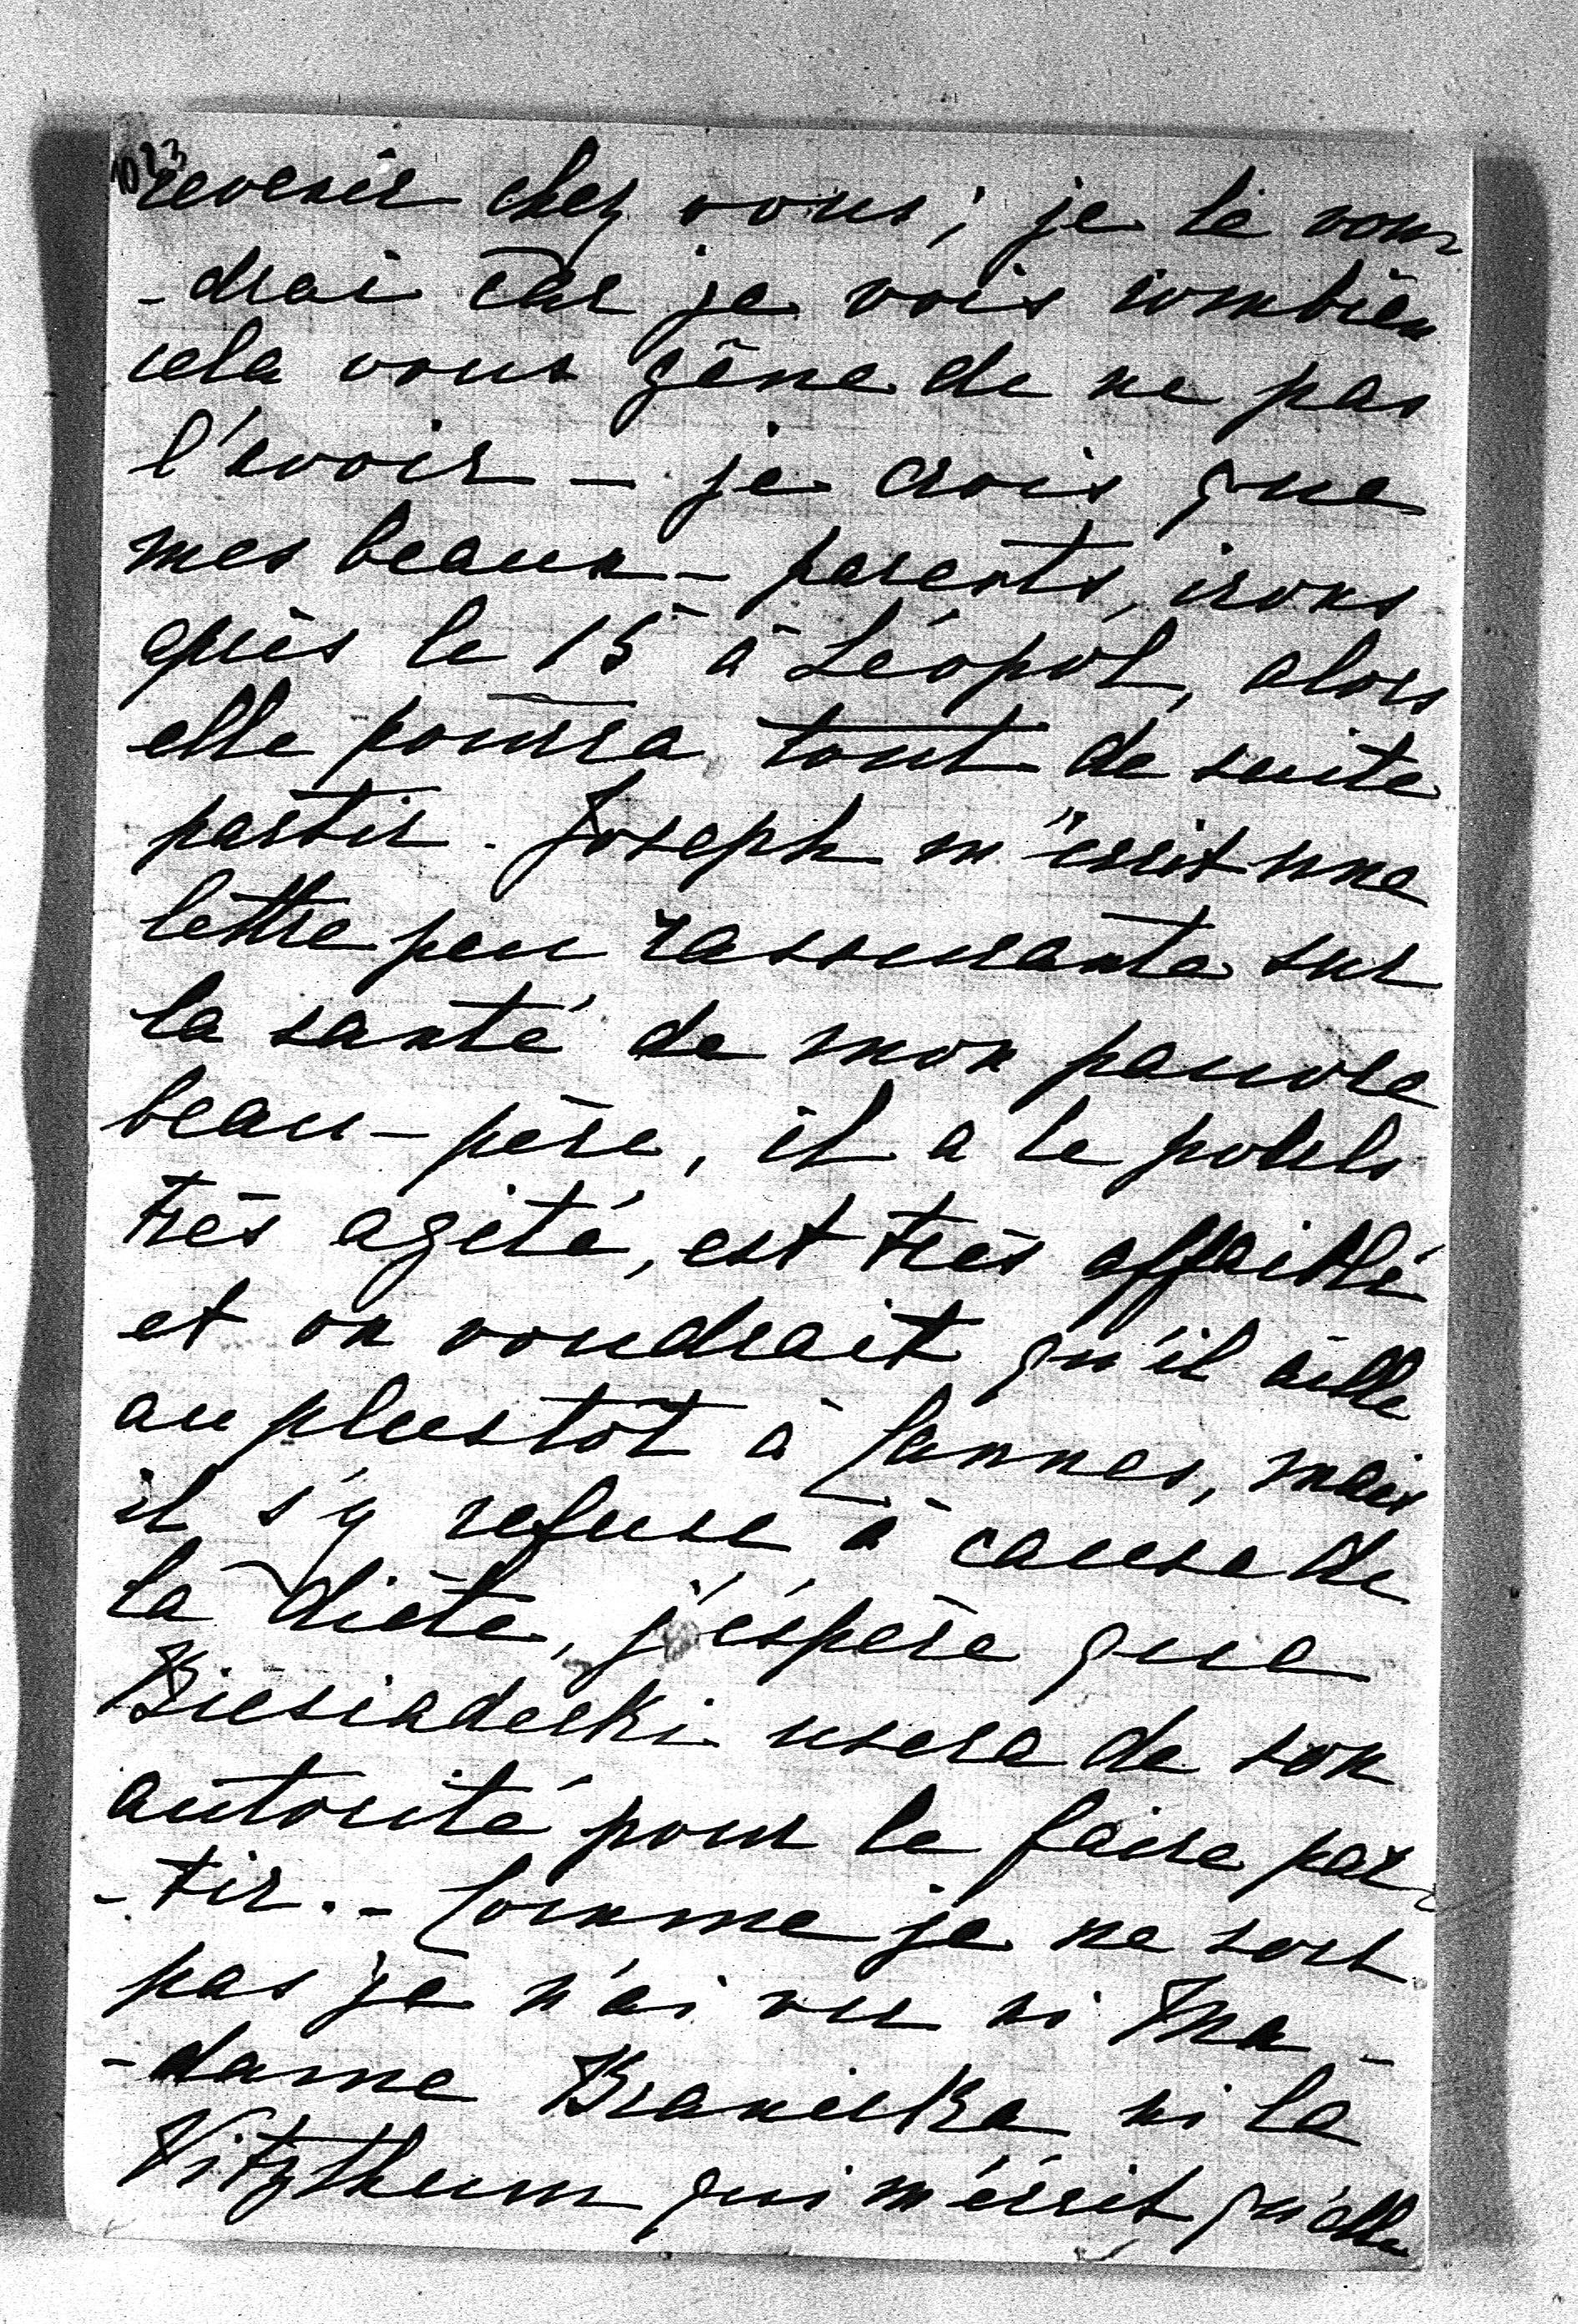 1023
revenir chez vous; je le vou-
-drai car je vois combien
cela vous gêne de ne pas
l'avoir – je crois que
mes beaux-parents, irons
après le 15 à Léopol, alors
elle pourra tout de suite
partir. Joseph m'écrit une
lettre peu rassurante sur
la santé de mon pauvre
beau-père, il a le pouls
très agité, est très affaibli
et on voudrait qu'il aille
au plustôt à Cannes, mais
il s'y refuse à cause de
la diète, j'éspère que
Biesiadecki usera de son
autorité pour le faire par-
-tir. – Comme je ne sort
pas je n'ai vu ni Ma-
-dame Branicka ni la
Vitzthum qui m'écrit qu'elle